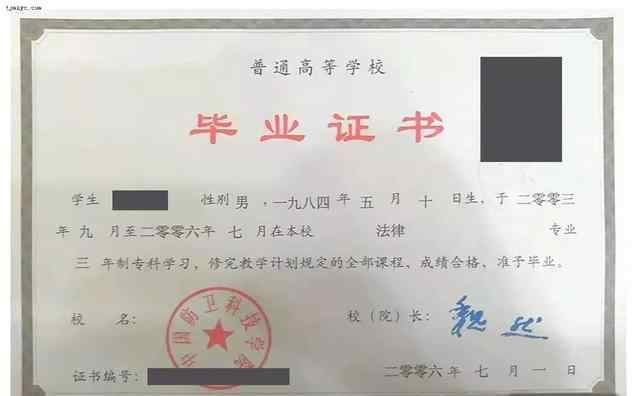 tjmzyc.com
普通高等学校
毕业证书
学生 性别 男 ,一九八四 年 五 月 十 日生，于 二〇〇三
年 九 月至二〇〇六年 七 月在本校 法律 专业
三 年制专科学习，修完教学计划规定的全部课程、成绩合格、准予毕业。
中国防卫科技学院
校 名： 校（院）长：
证书编号： 二〇〇六 年 七 月 一 日